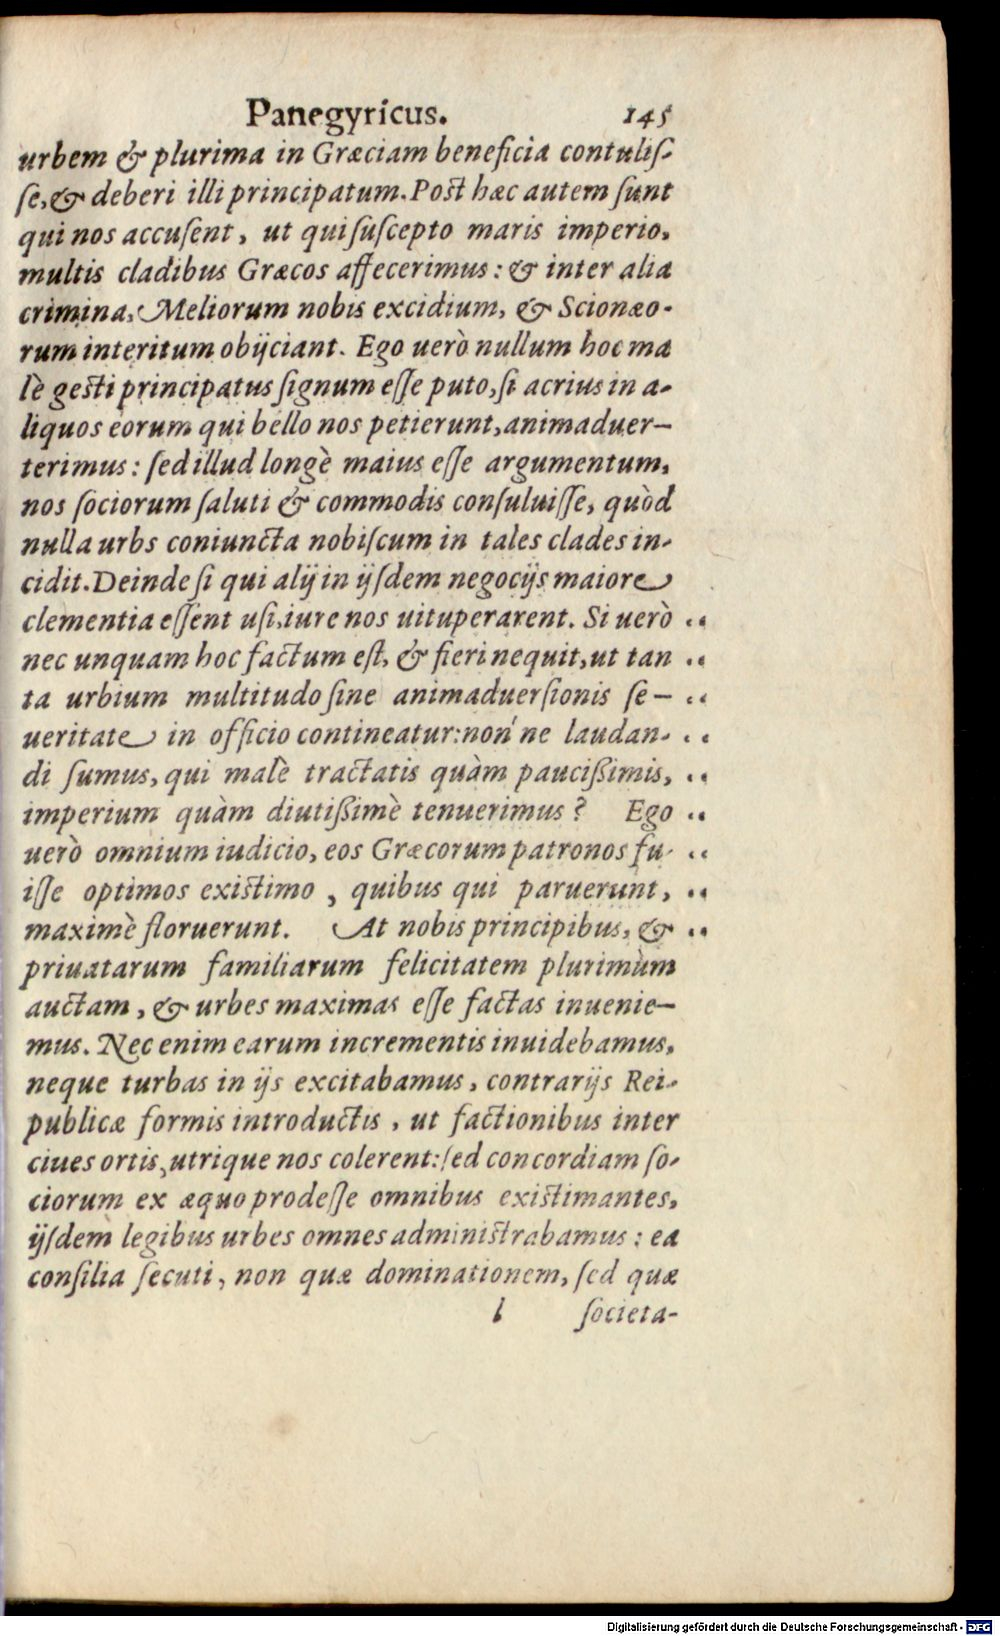 Panegyricus. 145
urbem & plurima in Græciam beneficia contuliſ-
ſe, & deberi illi principatum. Poſt hæc autem ſunt
qui nos accuſent, ut qui ſuſcepto maris imperio,
multis cladibus Græcos affecerimus: & inter alia
crimina, Meliorum nobis excidium, & Scionæo-
rum interitum obijciant. Ego uerò nullum hoc ma
lè geſti principatus ſignum eſſe puto, ſi acrius in a-
liquos eorum qui bello nos petierunt, animaduer-
terimus: ſed illud longè maius eſſe argumentum,
nos ſociorum ſaluti & commodis conſuluiſſe, quòd
nulla urbs coniuncta nobiſcum in tales clades in-
cidit. Deinde ſi qui alij in ijſdem negocijs maiore
clementia eſſent uſi, iure nos uituperarent. Si uerò ..
nec unquam hoc factum eſt, & fieri nequit, ut tan ..
ta urbium multitudo ſine animaduerſionis ſe- ..
ueritate in officio contineatur: non'ne laudan- ..
di ſumus, qui malè tractatis quàm pauciſſimis, ..
imperium quàm diutiſſimè tenuerimus? Ego ..
uerò omnium iudicio, eos Græcorum patronos fu- ..
iſſe optimos exiſtimo, quibus qui paruerunt, ..
maximè floruerunt. At nobis principibus, & ..
priuatarum familiarum felicitatem plurimùm
auctam, & urbes maximas eſſe factas inuenie-
mus. Nec enim earum incrementis inuidebamus,
neque turbas in ijs excitabamus, contrarijs Rei-
publicæ formis introductis, ut factionibus inter
ciues ortis, utrique nos colerent: ſed concordiam ſo-
ciorum ex æquo prodeſſe omnibus exiſtimantes,
ijſdem legibus urbes omnes adminiſtrabamus: ea
conſilia ſecuti, non quæ dominationem, ſed quæ
l ſocieta-
Digitalisierung gefördert durch die Deutsche Forschungsgemeinschaft - DFG